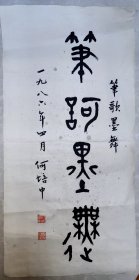 筆歌墨舞
筆訶墨舞
一九八六年四月 何培中